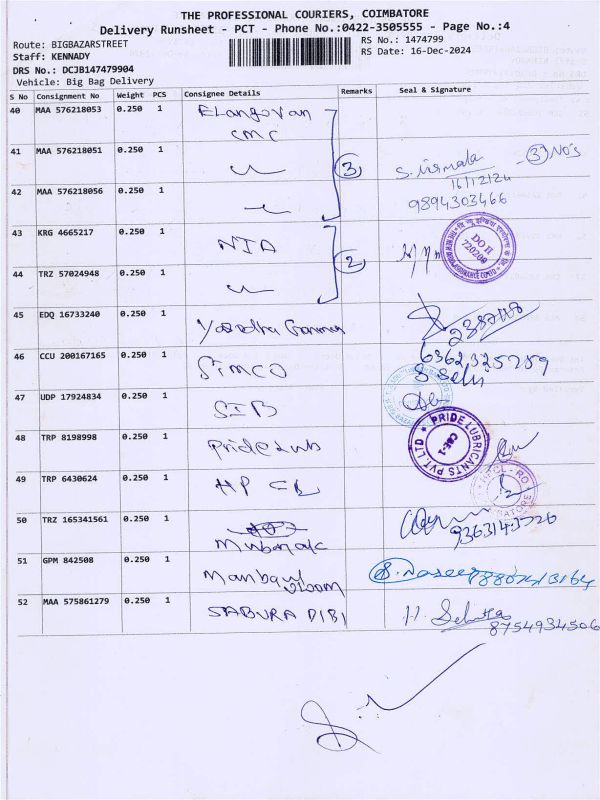 THE PROFESSIONAL COURIERS, COIMBATORE
Delivery Runsheet - PCT - Phone No.:0422-3505555 - Page No.:4
Route: BIGBAZARSTREET
RS No.: 1474799
Staff: KENNADY
RS Date: 16-Dec-2024
DRS No.: DCJB147479904
Vehicle: Big Bag Delivery
S No Consignment No Weight PCS Consignee Details Remarks Seal & Signature
40 MAA 576218053 0.250 1 Elangovan
CMC
41 MAA 576218051 0.250 1
3 S. Nirmala - 3 No's
16/12/24
42 MAA 576218056 0.250 1
9894303466
43 KRG 4665217 0.250 1 NIA
2 DO II 720200
44 TRZ 57024948 0.250 1
45 EDQ 16733240 0.250 1
46 CCU 200167165 0.250 1 SIMCO
6362325789
S Selvi
47 UDP 17924834 0.250 1 SIB
48 TRP 8198998 0.250 1 Pride Lub
PRIDE LUBRICANTS PVT LTD CBE-1
49 TRP 6430624 0.250 1 HP
50 TRZ 165341561 0.250 1
9363143526
51 GPM 842508 0.250 1
8807413164
52 MAA 575861279 0.250 1 SABURA BIBI
8754934506